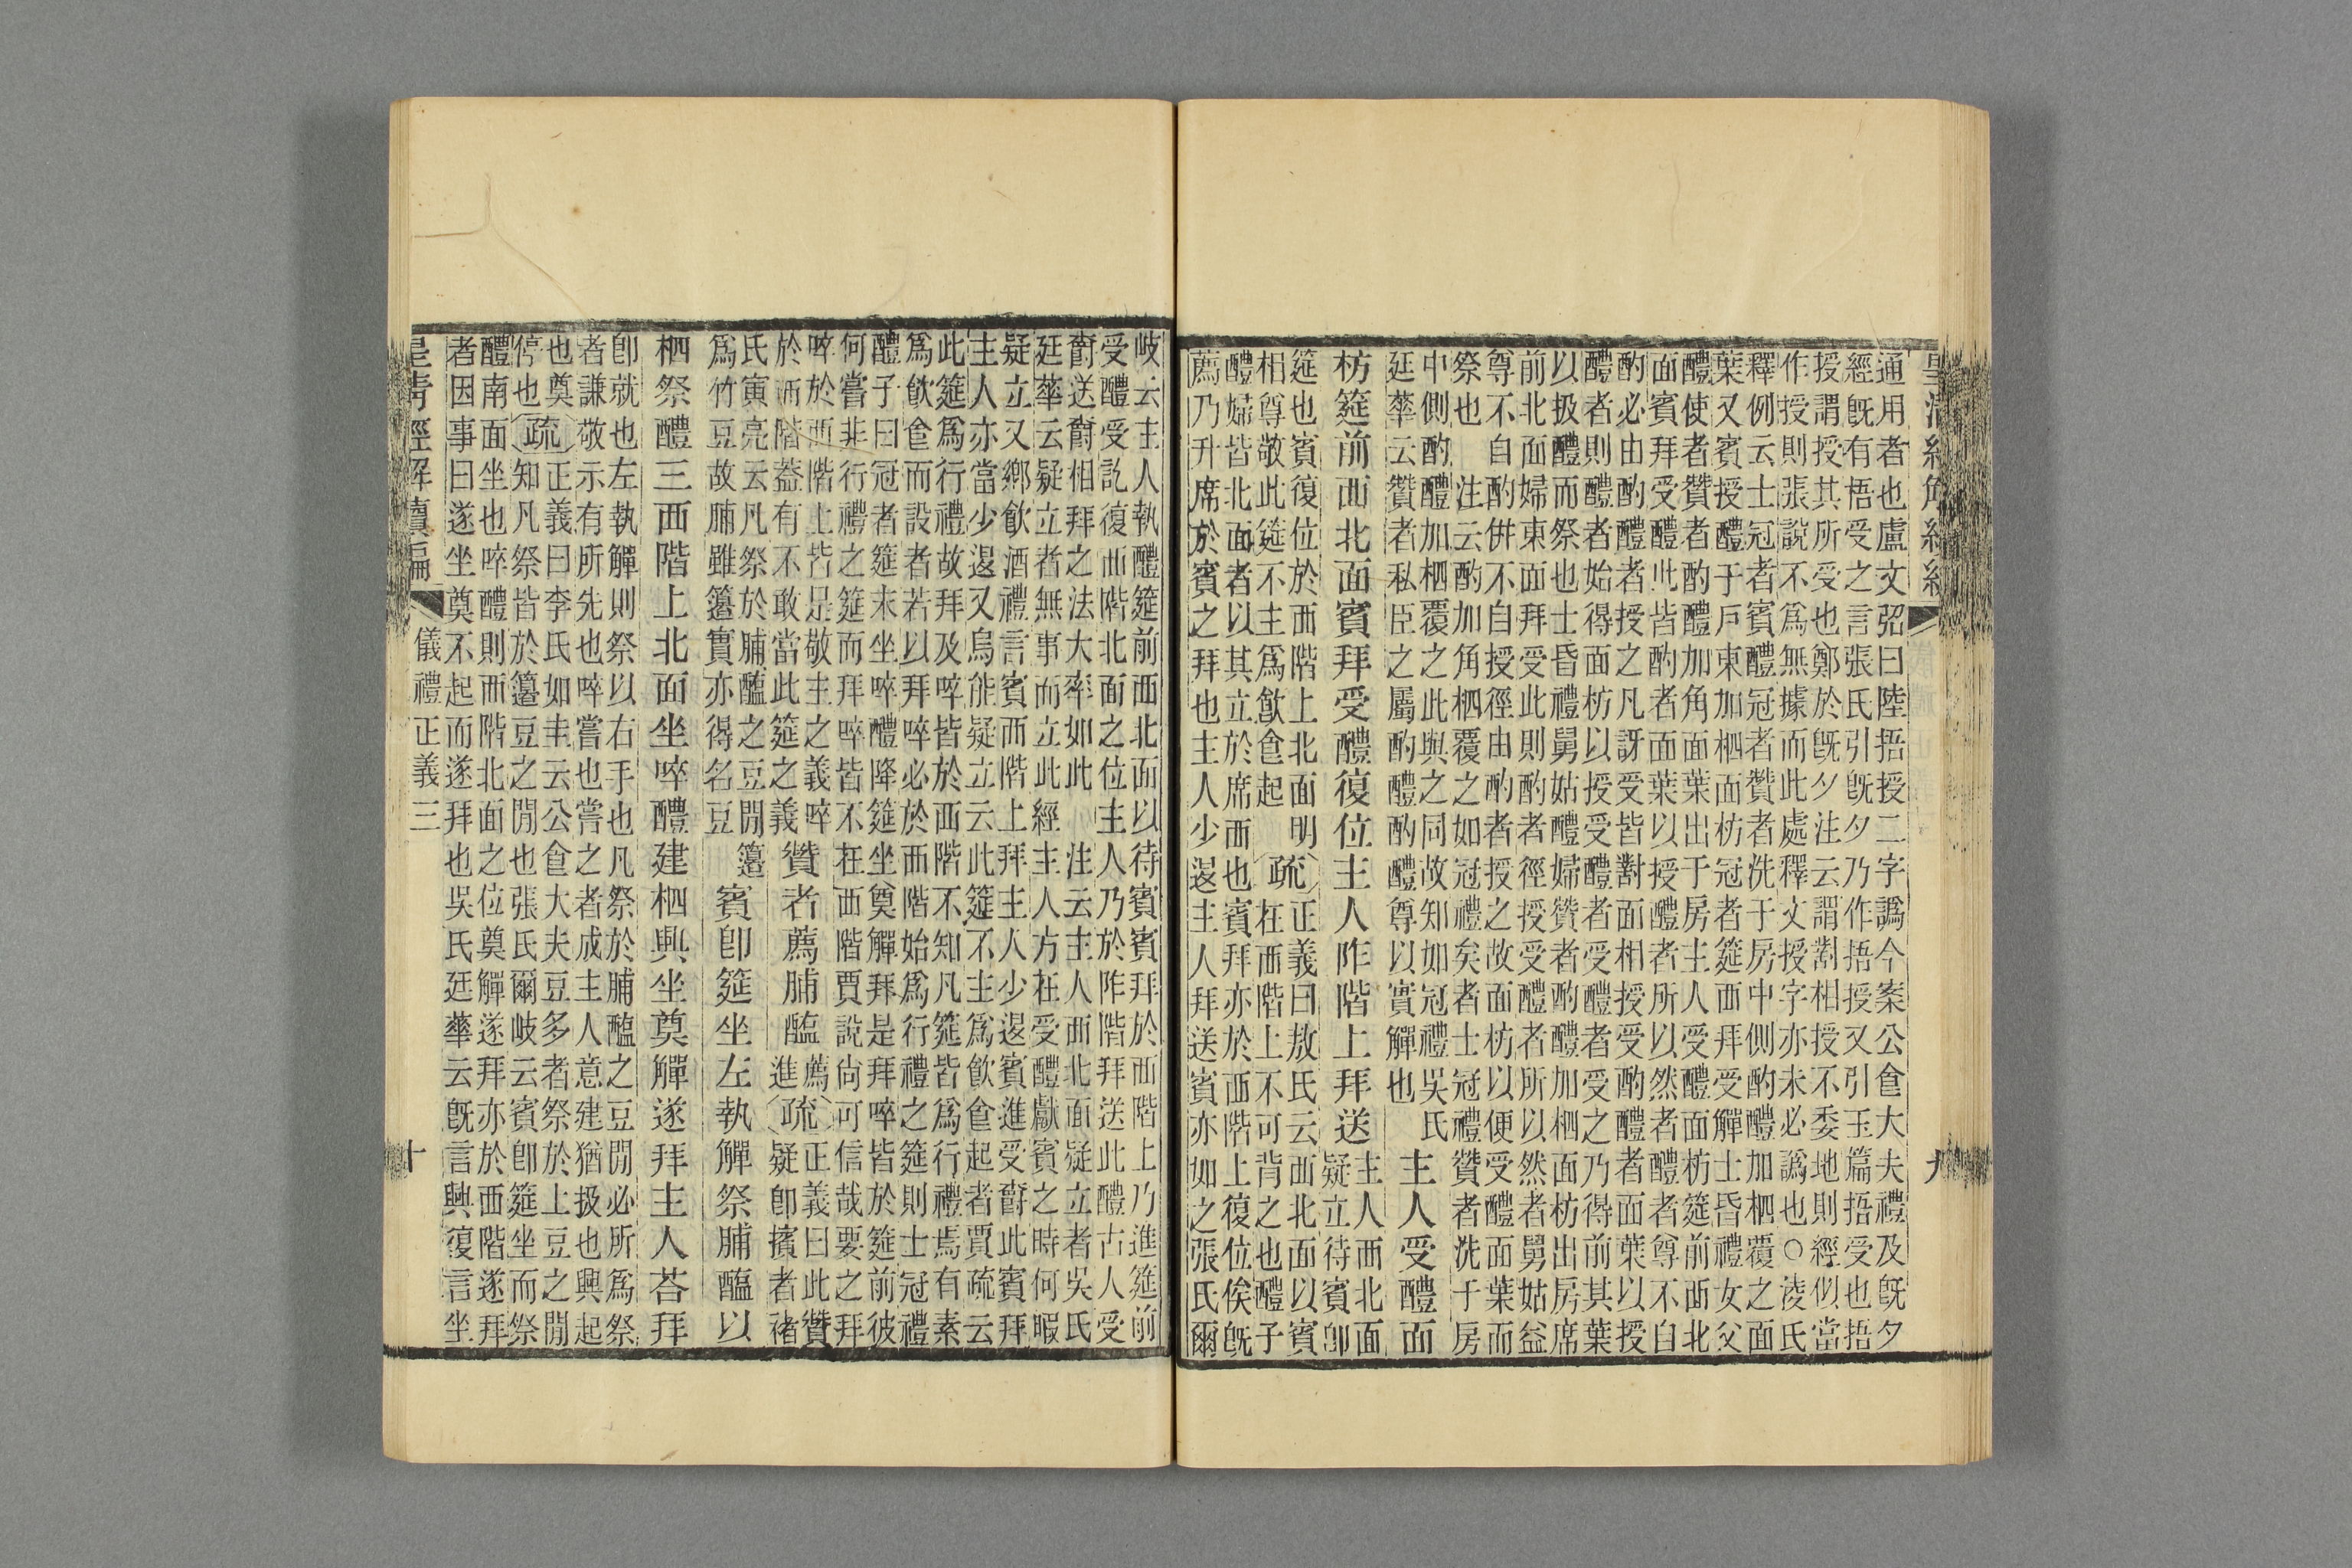 通用者也盧文弨曰陸捂授二字譌今案公食大夫禮及旣夕
經旣有梧受之言張氏引旣夕乃作捂授又引玉篇捂受也捂
授謂授其所受也鄭於旣夕注云謂對相授不委地則經似當
作授則張說不爲無據而此處釋文授字亦未必譌也○淩氏
釋例云士冠者賓醴冠者贊者洗于房中側酌醴加柶覆之面
葉又賓授醴于戶東加柶面枋冠者筵西拜受觶士昏禮女父
醴使者贊者酌醴加角柶面葉出于房主人受醴面枋筵前西北
面賓拜受醴此皆酌者面葉以授醴者所以然者醴者尊不自
酌必由酌醴者授之凡訝受皆對面相授受酌醴者面葉以授
醴者則醴者始得面枋以授受醴者受醴者受之乃得前其葉
以扱醴而祭也士昏禮舅姑醴婦贊者酌醴加柶面枋出房席
前北面婦東面拜受此則酌者徑授受醴者所以然者舅姑益
尊不自酌併不自授徑由酌者授之故面枋以便受醴面葉而
祭也　注云酌加角柶覆之如冠禮矣者士冠禮贊者洗于房
中側酌醴加柶覆之此與之同故知如冠禮吳氏
廷華云贊者私臣之屬酌醴酌醴尊以實觶也
主人受醴面
枋筵前西北面賓拜受醴復位主人阼階上拜送
主人西北面
疑立待賓卽
筵也賓復位於西階上北面明
相尊敬此筵不主爲飮食起
疏
正義曰敖氏云西北面以賓
在西階上不可背之也醴子
醴婦皆北面者以其立於席西也賓拜亦於西階上復位俟旣
薦乃升席於賓之拜也主人少退主人拜送賓亦如之張氏爾
九
岐云主人執醴筵前西北面以待賓賓拜於西階上乃進筵前
受醴受訖復西階北面之位主人乃於阼階拜送此醴古人受
爵送爵相拜之法大率如此　注云主人西北面疑立者吳氏
廷華云疑立者無事而立此經主人方在受醴獻賓之時何暇
疑立又鄉飮酒禮言賓西階上拜主人少退賓進受爵此賓拜
主人亦當少退又烏能疑立云此筵不主爲飮食起者賈疏云
此筵爲行禮故拜及啐皆於西階不知凡筵皆爲行禮焉有素
爲飮食而設者若以拜啐必於西階始爲行禮之筵則士冠禮
醴子曰冠者筵末坐啐醴降筵坐奠觶拜是拜啐皆於筵前彼
何嘗非行禮之筵而拜啐皆不在西階賈說尙可信哉要之拜
啐於西階上皆是敬主之義啐
於西階葢有不敢當此筵之義
贊者薦脯醢
薦
進
疏
正義曰此贊
疑卽擯者褚
氏寅亮云凡祭於脯醢之豆閒籩
爲竹豆故脯雖籩實亦得名豆
賓卽筵坐左執觶祭脯醢以
柶祭醴三西階上北面坐啐醴建柶興坐奠觶遂拜主人荅拜
卽就也左執觶則祭以右手也凡祭於脯醢之豆閒必所爲祭
者謙敬示有所先也啐嘗也嘗之者成主人意建猶扱也興起
也奠
停也
疏
正義曰李氏如圭云公食大夫豆多者祭於上豆之閒
知凡祭皆於籩豆之閒也張氏爾岐云賓卽筵坐而祭
醴南面坐也啐醴則西階北面之位奠觶遂拜亦於西階遂拜
者因事曰遂坐奠不起而遂拜也吳氏廷華云旣言興復言坐
皇清經解續編　儀禮正義三　十